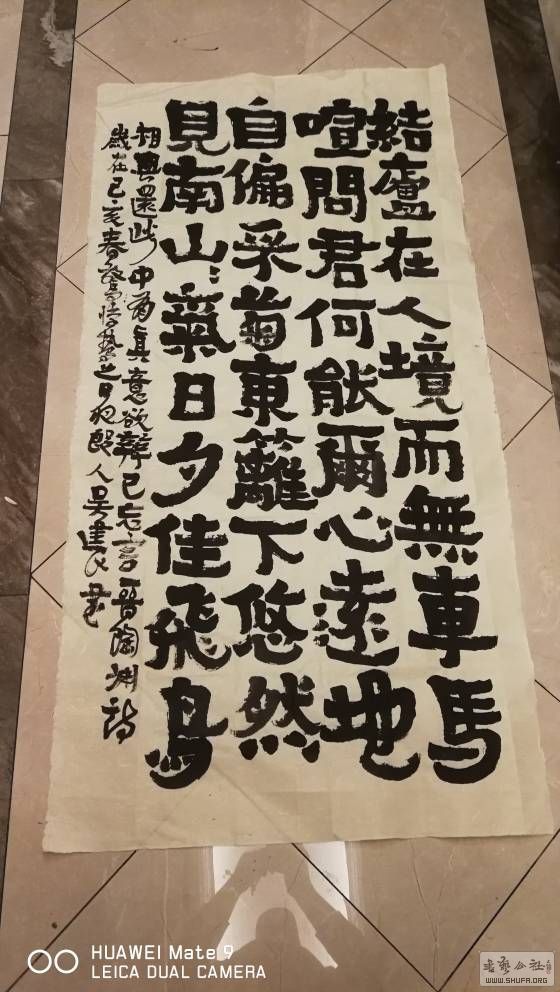 結廬在人境而無車馬
喧問君何能爾心遠地
自偏采菊東籬下悠然
見南山〻氣日夕佳飛鳥
相與還此中有真意欲辯已忘言晉陶渊詩
歲在己亥春之日夜郎人吳建民書
HUAWEI Mate 9
LEICA DUAL CAMERA
书艺公社
WWW.SHUFA.ORG